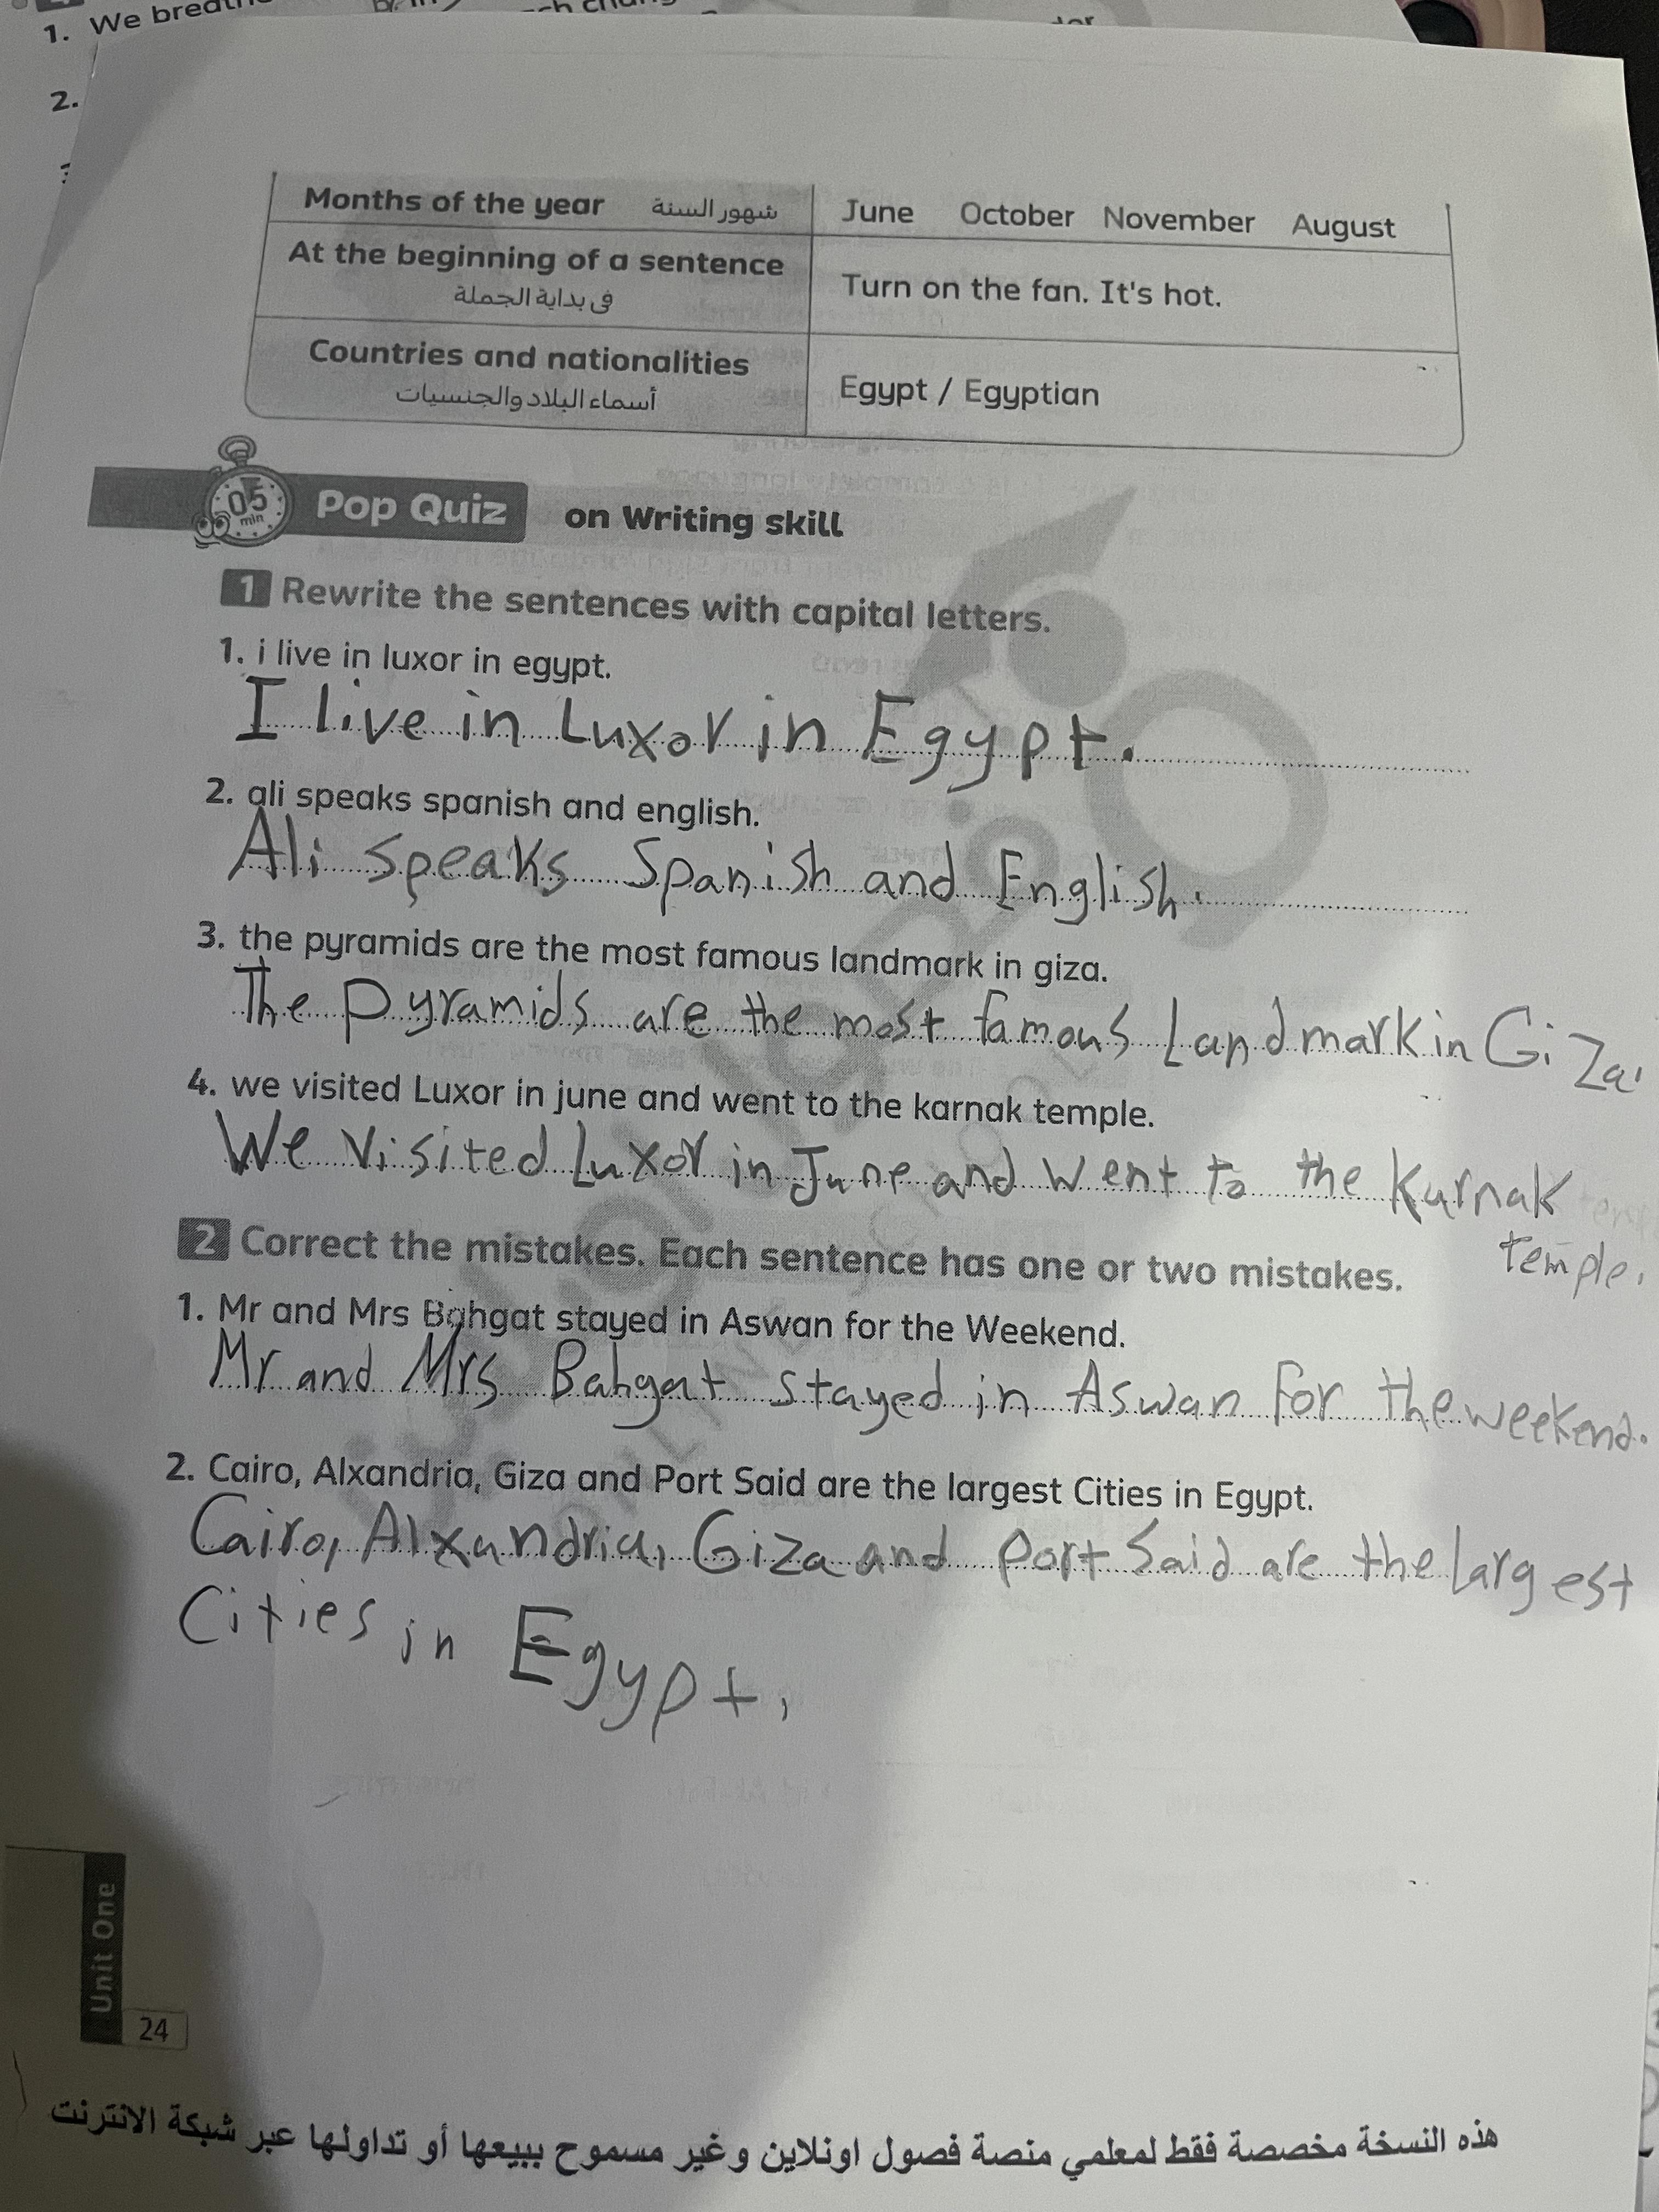 1. We breath
2.
Months of the year شهور السنة June October November August
At the beginning of a sentence
فى بداية الجملة
Turn on the fan. It's hot.
Countries and nationalities
أسماء البلاد والجنسيات
Egypt / Egyptian
05
min
Pop Quiz on Writing skill
1 Rewrite the sentences with capital letters.
1. i live in luxor in egypt.
I live in Luxor in Egypt.
2. ali speaks spanish and english.
Ali speaks Spanish and English.
3. the pyramids are the most famous landmark in giza.
The pyramids are the most famous Landmark in Giza.
4. we visited Luxor in june and went to the karnak temple.
We visited Luxor in June and went to the Karnak
temple.
2 Correct the mistakes. Each sentence has one or two mistakes.
1. Mr and Mrs Bahgat stayed in Aswan for the Weekend.
Mr and Mrs Bahgat stayed in Aswan for the weekend.
2. Cairo, Alxandria, Giza and Port Said are the largest Cities in Egypt.
Cairo, Alxandria, Giza and port Said are the largest
Cities in Egypt.
Unit One
24
هذه النسخة مخصصة فقط لمعلمي منصة فصول اونلاين وغير مسموح ببيعها أو تداولها عبر شبكة الانترنت